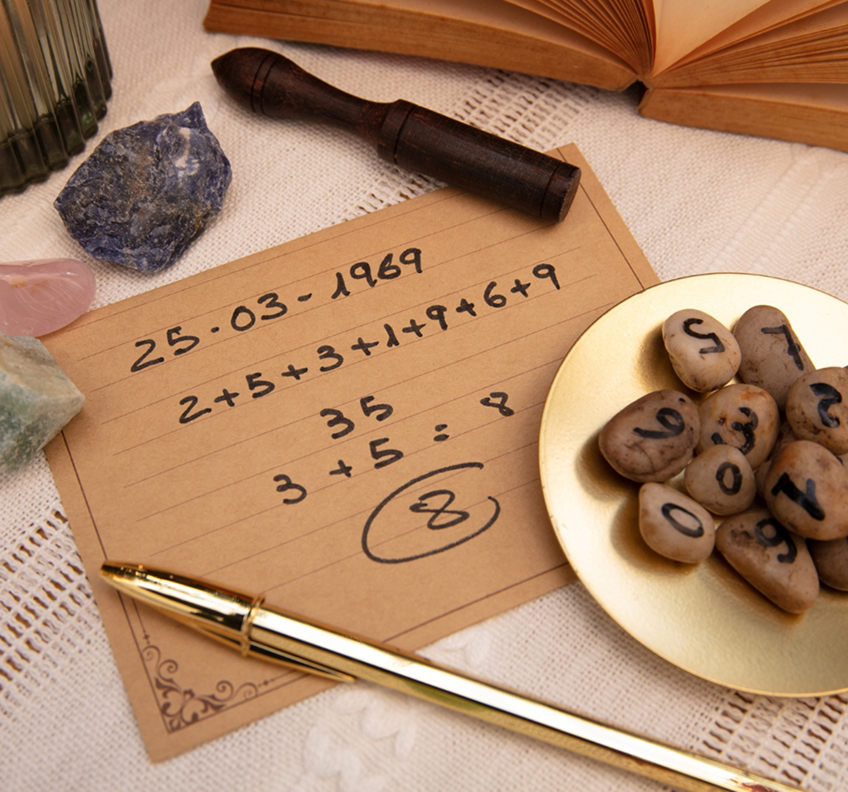 25.03-1969
2+5+3+1+9+6+9
35
3+5=8
8
5
7
2
9
3
0
1
0
9